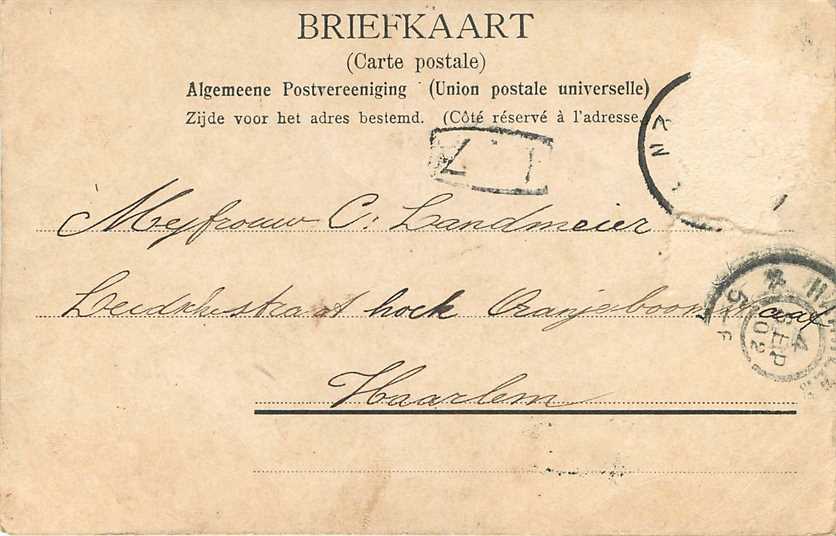 BRIEFKAART
(Carte postale)
Algemeene Postvereeniging (Union postale universelle)
Zijde voor het adres bestemd. (Côté réservé à l'adresse.
Mejfrouw C. Landmeier
Leidschestraat hoek Oranjeboomstraat
Haarlem
4 SEP 02